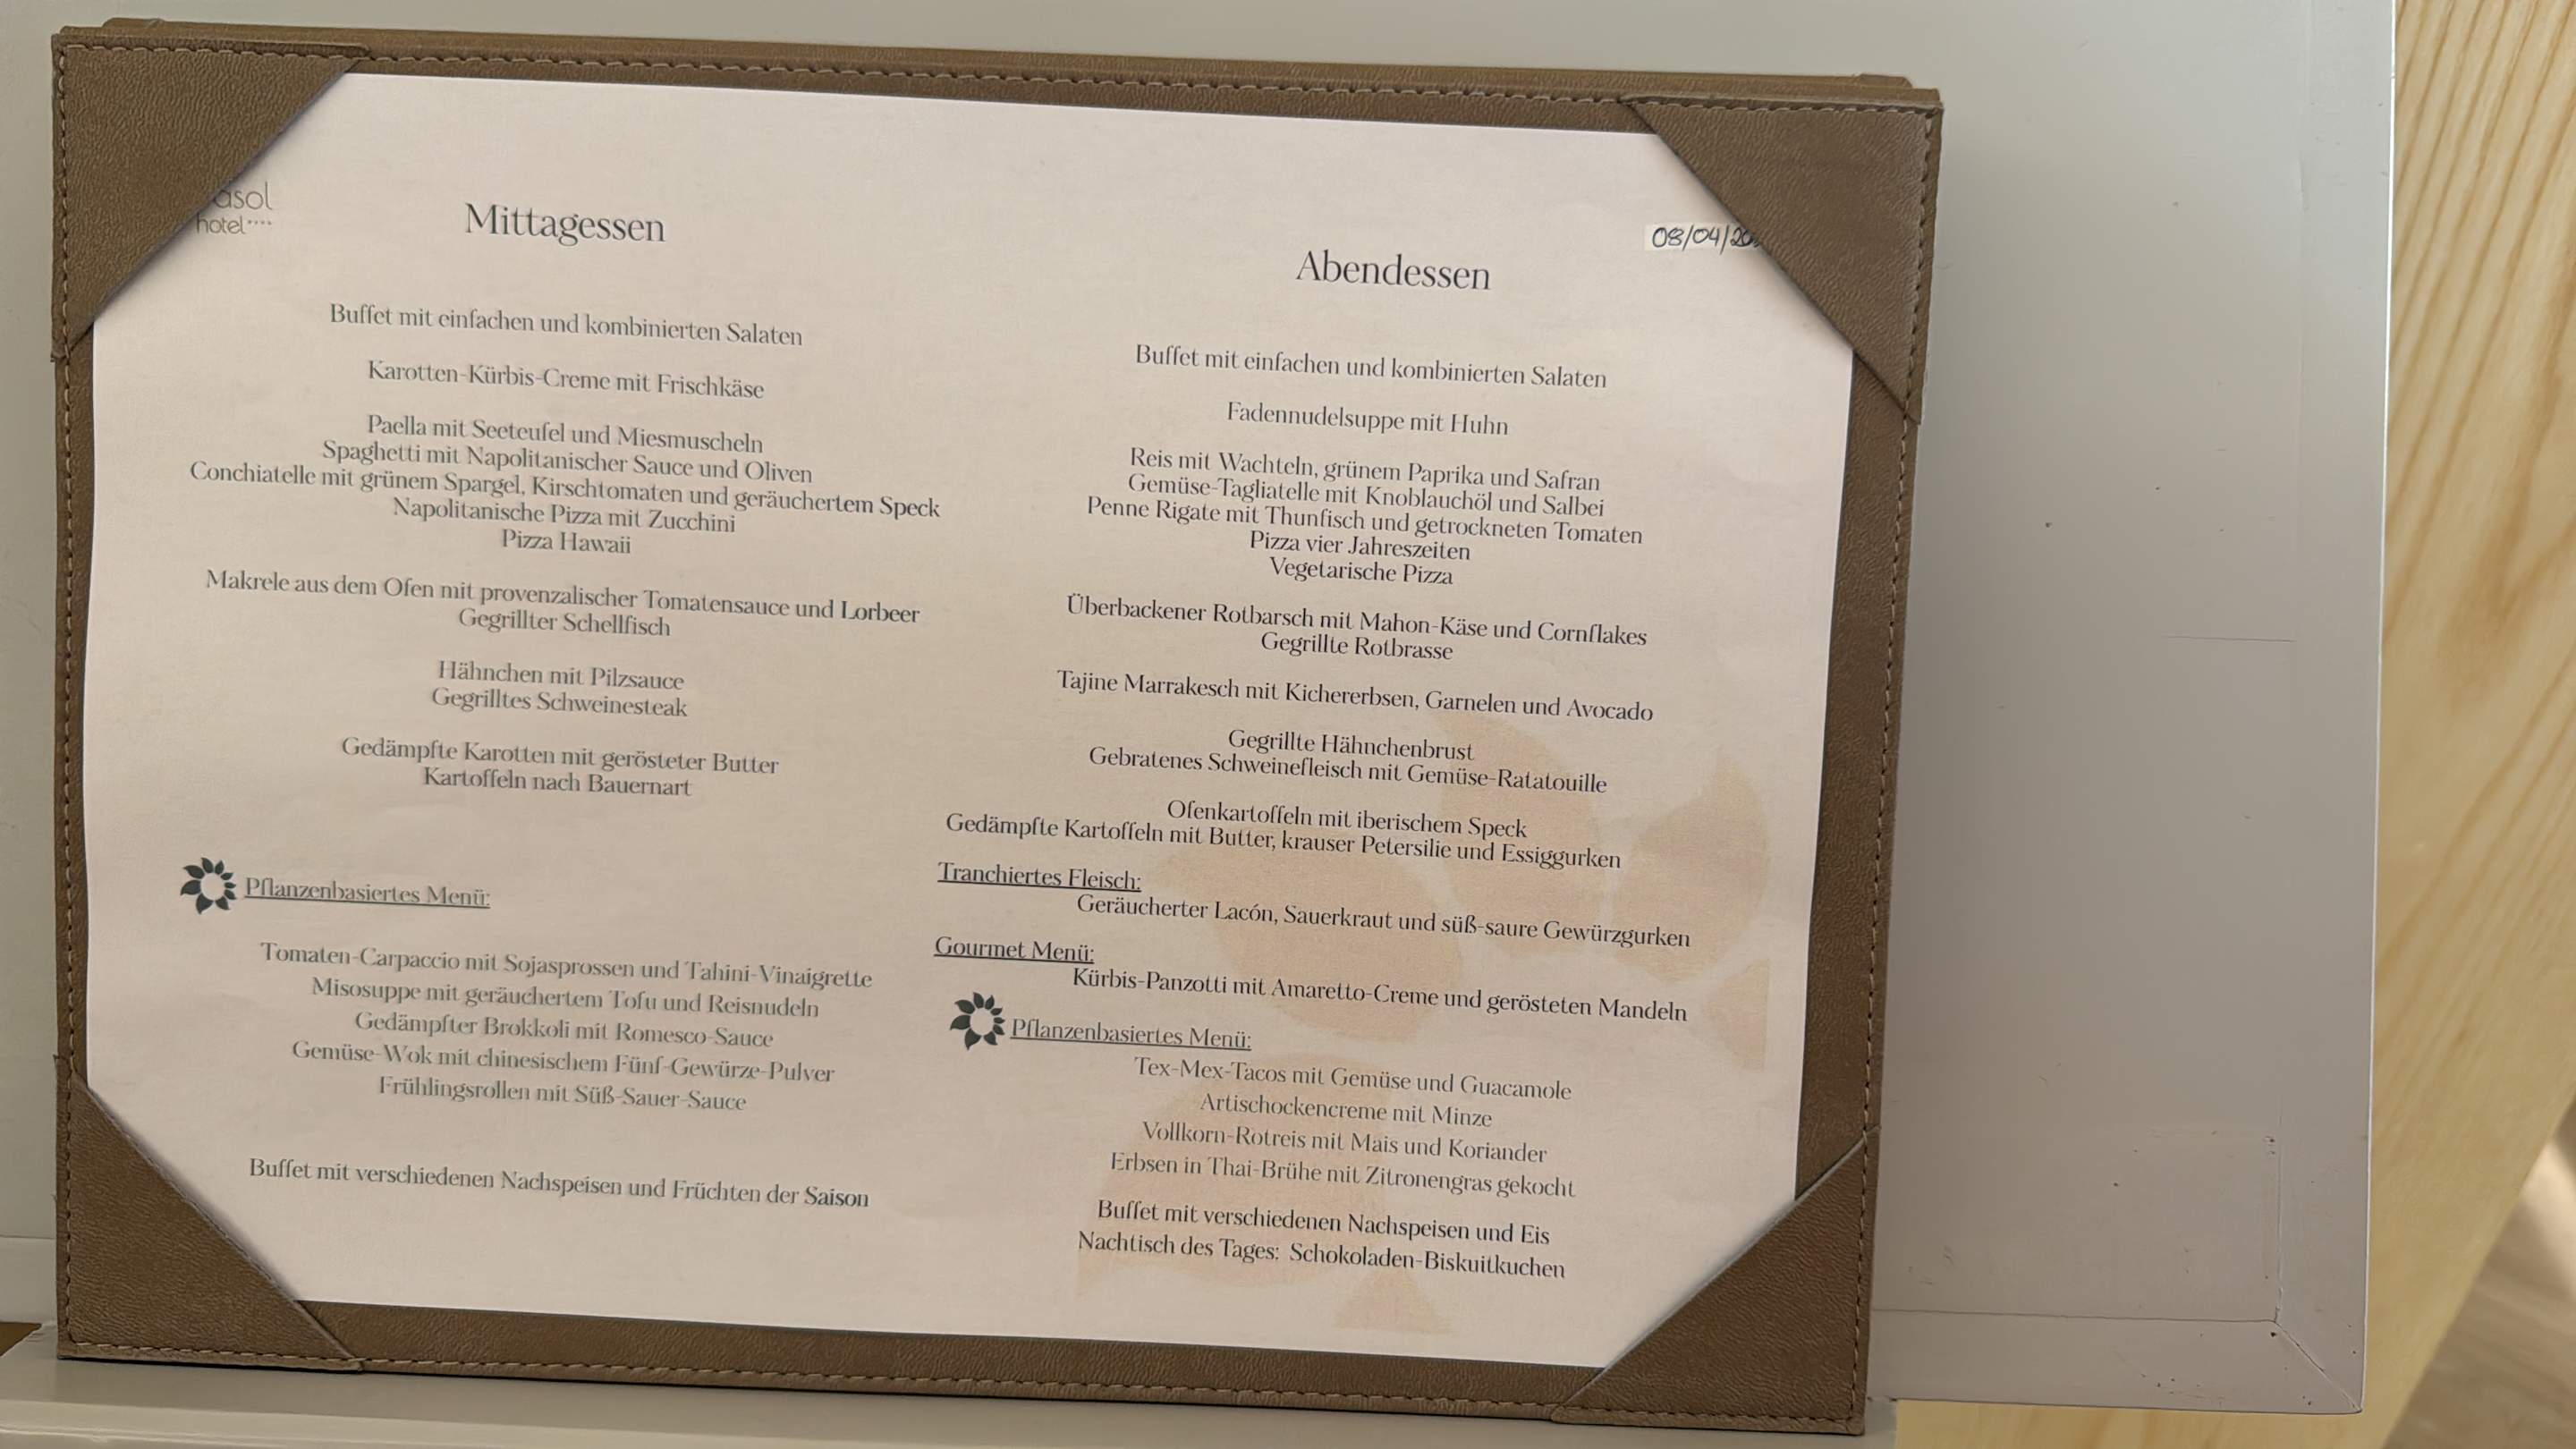 asol
hotel****
Mittagessen
Buffet mit einfachen und kombinierten Salaten
Karotten-Kürbis-Creme mit Frischkäse
Paella mit Seeteufel und Miesmuscheln
Spaghetti mit Napolitanischer Sauce und Oliven
Conchiatelle mit grünem Spargel, Kirschtomaten und geräuchertem Speck
Napolitanische Pizza mit Zucchini
Pizza Hawaii
Makrele aus dem Ofen mit provenzalischer Tomatensauce und Lorbeer
Gegrillter Schellfisch
Hähnchen mit Pilzsauce
Gegrilltes Schweinesteak
Gedämpfte Karotten mit gerösteter Butter
Kartoffeln nach Bauernart
Pflanzenbasiertes Menü:
Tomaten-Carpaccio mit Sojasprossen und Tahini-Vinaigrette
Misosuppe mit geräuchertem Tofu und Reisnudeln
Gedämpfter Brokkoli mit Romesco-Sauce
Gemüse-Wok mit chinesischem Fünf-Gewürze-Pulver
Frühlingsrollen mit Süß-Sauer-Sauce
Buffet mit verschiedenen Nachspeisen und Früchten der Saison
08/04/20
Abendessen
Buffet mit einfachen und kombinierten Salaten
Fadennudelsuppe mit Huhn
Reis mit Wachteln, grünem Paprika und Safran
Gemüse-Tagliatelle mit Knoblauchöl und Salbei
Penne Rigate mit Thunfisch und getrockneten Tomaten
Pizza vier Jahreszeiten
Vegetarische Pizza
Überbackener Rotbarsch mit Mahon-Käse und Cornflakes
Gegrillte Rotbrasse
Tajine Marrakesch mit Kichererbsen, Garnelen und Avocado
Gegrillte Hähnchenbrust
Gebratenes Schweinefleisch mit Gemüse-Ratatouille
Ofenkartoffeln mit iberischem Speck
Gedämpfte Kartoffeln mit Butter, krauser Petersilie und Essiggurken
Tranchiertes Fleisch:
Geräucherter Lacón, Sauerkraut und süß-saure Gewürzgurken
Gourmet Menü:
Kürbis-Panzotti mit Amaretto-Creme und gerösteten Mandeln
Pflanzenbasiertes Menü:
Tex-Mex-Tacos mit Gemüse und Guacamole
Artischockencreme mit Minze
Vollkorn-Rotreis mit Mais und Koriander
Erbsen in Thai-Brühe mit Zitronengras gekocht
Buffet mit verschiedenen Nachspeisen und Eis
Nachtisch des Tages: Schokoladen-Biskuitkuchen